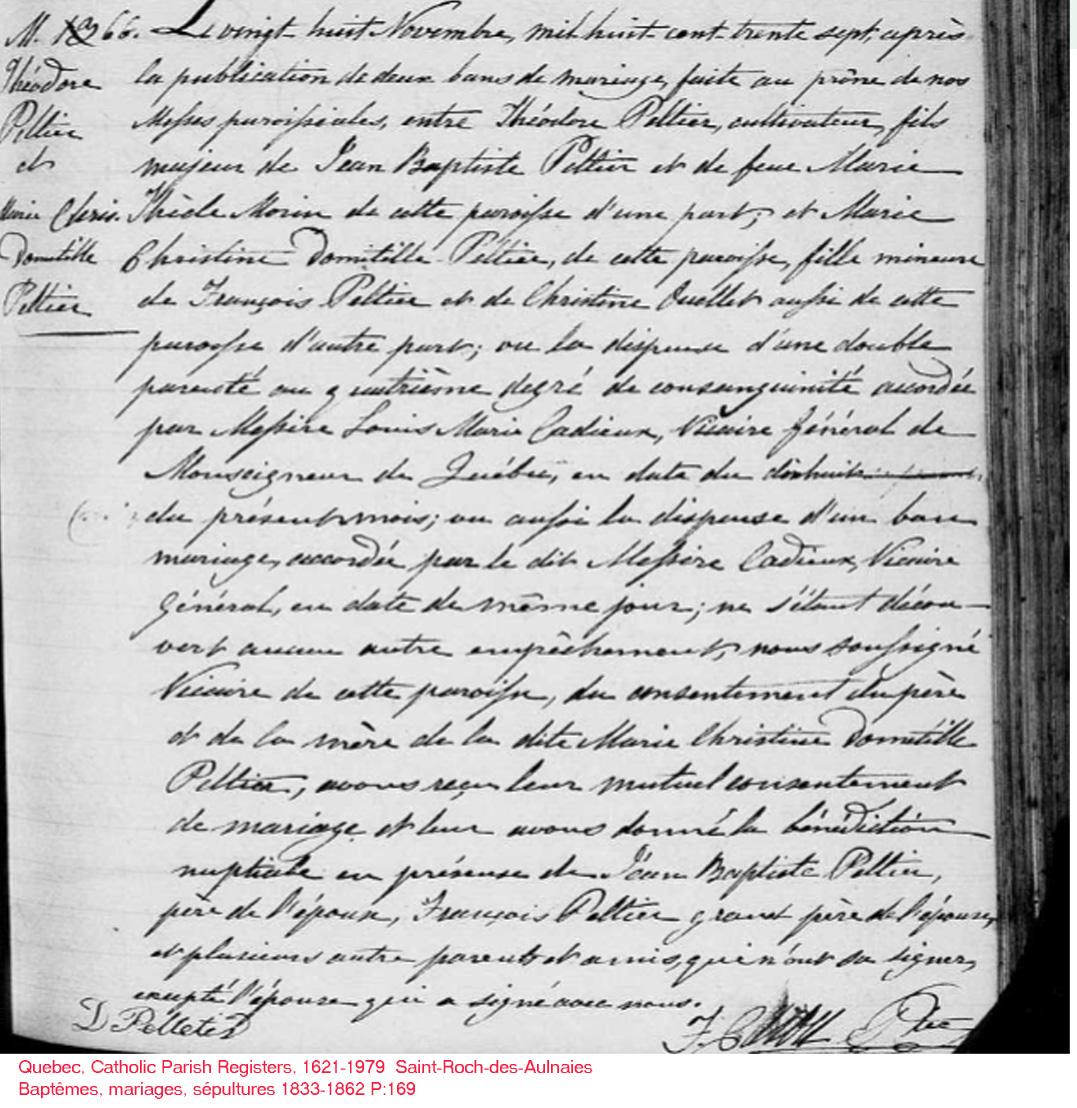 M. 66. Le vingt huit Novembre, mil huit cent trente sept, après
Théodore
Peltier
et
Marie Chris.
Domitille
Peltier
la publication de deux bans de mariage, faite au prône de nos
Messes paroissiales, entre Théodore Peltier, cultivateur, fils
majeur de Jean Baptiste Peltier et de feue Marie
Thècle Morin de cette paroisse d'une part; et Marie
Christine Domitille Peltier, de cette paroisse, fille mineure
de François Peltier et de Christine Ouellet aussi de cette
paroisse d'autre part; vu la dispense d'une double
parenté au quatrième degré de consanguinité accordée
par Messire Louis Marie Cadieux, Vicaire Général de
Monseigneur de Québec, en date du dixhuit
du présent mois; vu aussi la dispense d'un ban
mariage, accordée par le dit Messire Cadieux, Vicaire
Général, en date de même jour; ne s'étant décou-
vert aucun autre empêchement, nous soussigné
Vicaire de cette paroisse, du consentement du père
et de la mère de la dite Marie Christine Domitille
Peltier, avons reçu leur mutuel consentement
de mariage et leur avons donné la bénédiction
nuptiale en présence de Jean Baptiste Peltier,
père de l'époux, François Peltier grand père de l'épouse,
et plusieurs autre parents et amis, qui n'ont su signer,
excepté l'épouse qui a signé avec nous.
D Pelletier
Ptre
Quebec, Catholic Parish Registers, 1621-1979 Saint-Roch-des-Aulnaies
Baptêmes, mariages, sépultures 1833-1862 P:169